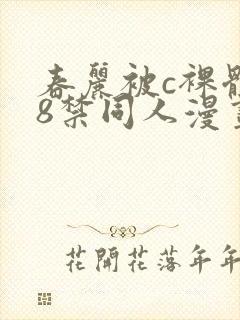 春麗被c裸體
8禁同人漫
花開花落年年